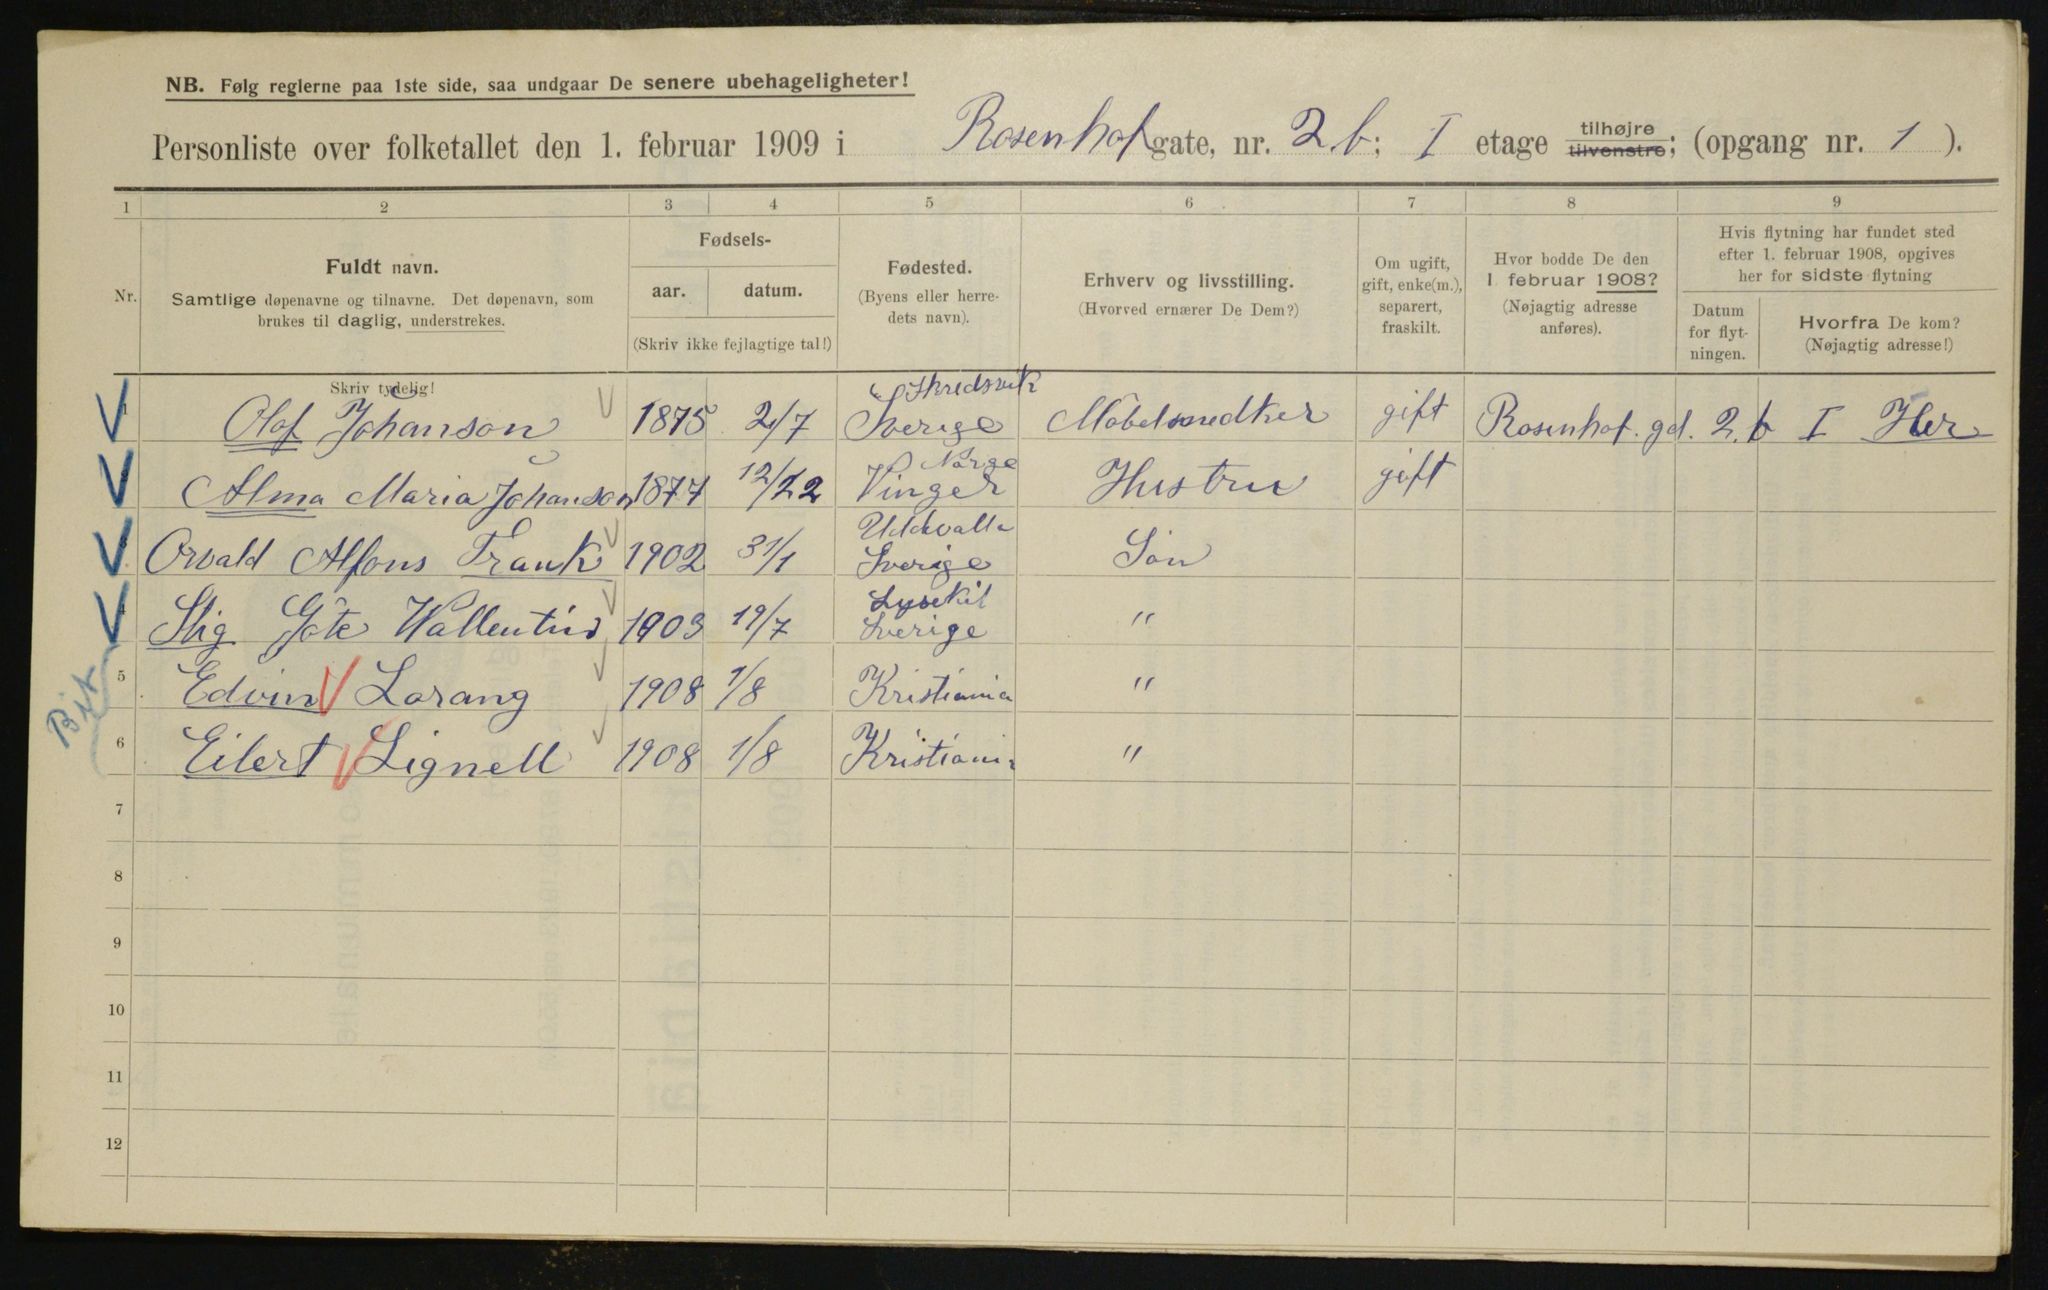 NB. Følg reglerne paa 1ste side, saa undgaar De senere ubehageligheter!
Personliste over folketallet den 1. februar 1909 i Rosenhof gate, nr. 2 b; I etage tilhøjre tilvenstre; (opgang nr. 1).
1 2 3 4 5 6 7 8 9
Nr.
Fuldt navn.
Samtlige døpenavne og tilnavne. Det døpenavn, som
brukes til daglig, understrekes.
Fødsels-
aar. datum.
(Skriv ikke fejlagtige tal!)
Fødested.
(Byens eller herre-
dets navn).
Erhverv og livsstilling.
(Hvorved ernærer De Dem?)
Om ugift,
gift, enke(m.),
separert,
fraskilt.
Hvor bodde De den
1 februar 1908?
(Nøjagtig adresse
anføres).
Hvis flytning har fundet sted
efter 1. februar 1908, opgives
her for sidste flytning
Datum
for flyt-
ningen.
Hvorfra De kom?
(Nøjagtig adresse!)
Skriv tydelig!
1 Olof Johanson 1875 2/7 Skredsvik Sverige Möbelsnedker gift Rosenhof. gd. 2. b I Her
Alma Maria Johanson 1877 12/22 Norge Vinger Hustru gift
Orvald Alfons Frank 1902 31/1 Uddevalla Sverige Sön
4 Stig Göte Wallentin 1903 19/7 Lysekil Sverige "
Bit
5 Edvin Lorang 1908 1/8 Kristiania "
6 Eilert Lignell 1908 1/8 Kristiania "
7
8
9
10
11
12